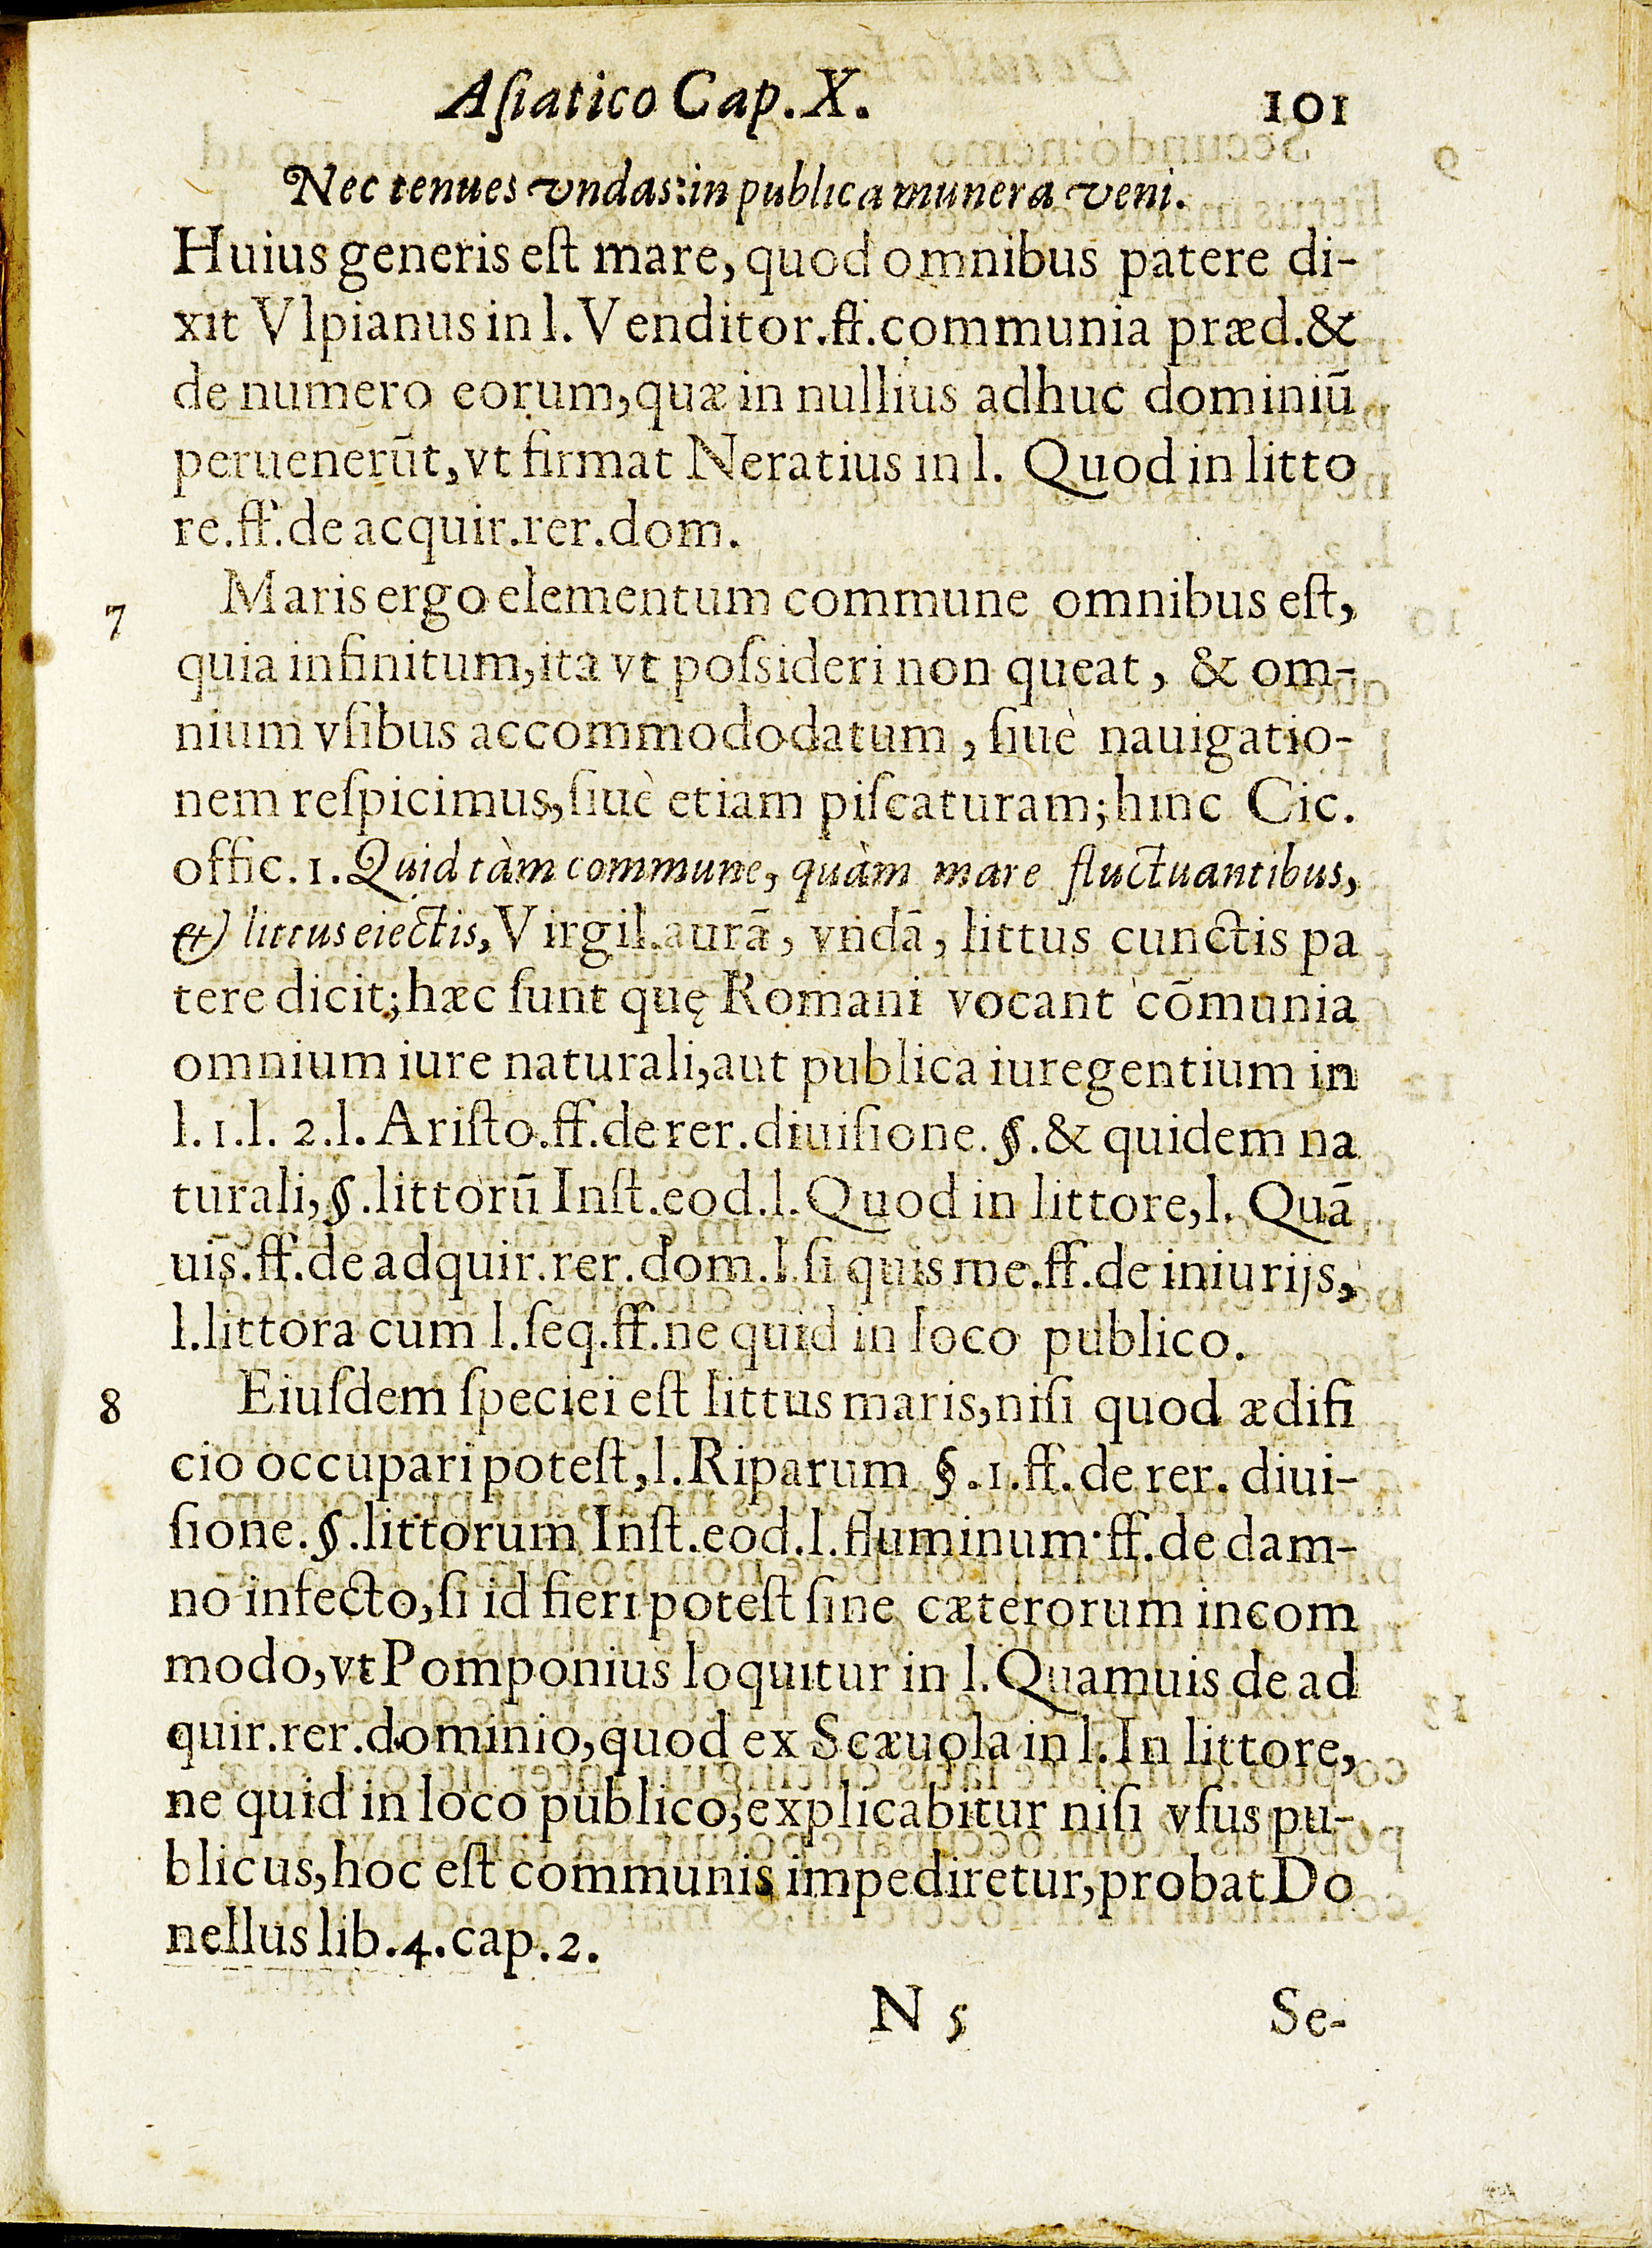 Aſiatico Cap. X. 101
Nec tenues vndas: in publica munera veni.
Huius generis eſt mare, quod omnibus patere di-
xit Vlpianus in l. Venditor. ff. communia præd. &
de numero eorum, quæ in nullius adhuc dominiū
peruenerūt, vt firmat Neratius in l. Quod in litto
re. ff. de acquir. rer. dom.
7 Maris ergo elementum commune omnibus eſt,
quia infinitum, ita vt poſsideri non queat, & om-
nium vſibus accommododatum, ſiuè nauigatio-
nem reſpicimus, ſiuè etiam piſcaturam; hinc Cic.
offic. 1. Quid tàm commune, quàm mare fluctuantibus,
& littus eiectis, Virgil. aurā, vndā, littus cunctis pa
tere dicit; hæc ſunt quę Romani vocant cōmunia
omnium iure naturali, aut publica iuregentium in
l. 1. l. 2. l. Ariſto. ff. de rer. diuiſione. §. & quidem na
turali, §. littorū Inſt. eod. l. Quod in littore, l. Quā
uis. ff. de adquir. rer. dom. l. ſi quis me. ff. de iniurijs,
l. littora cum l. ſeq. ff. ne quid in loco publico.
8 Eiuſdem ſpeciei eſt littus maris, niſi quod ædifi
cio occupari poteſt, l. Riparum §. 1. ff. de rer. diui-
ſione. §. littorum Inſt. eod. l. fluminum. ff. de dam-
no infecto, ſi id fieri poteſt ſine cæterorum incom
modo, vt Pomponius loquitur in l. Quamuis de ad
quir. rer. dominio, quod ex Scæuola in l. In littore,
ne quid in loco publico, explicabitur niſi vſus pu-
blicus, hoc eſt communis impediretur, probat Do
nellus lib. 4. cap. 2.
N 5 Se-